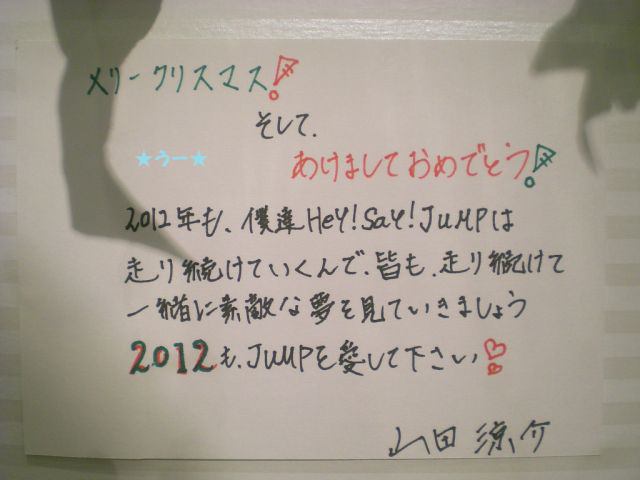 メリークリスマス!
そして.
★うー★
あけましておめでとう!
2012年も、僕達HeY!SaY!JUMPは
走り続けていくんで、皆も、走り続けて
一緒に素敵な夢を見ていきましょう
2012も、JUMPを愛して下さい!
山田涼介